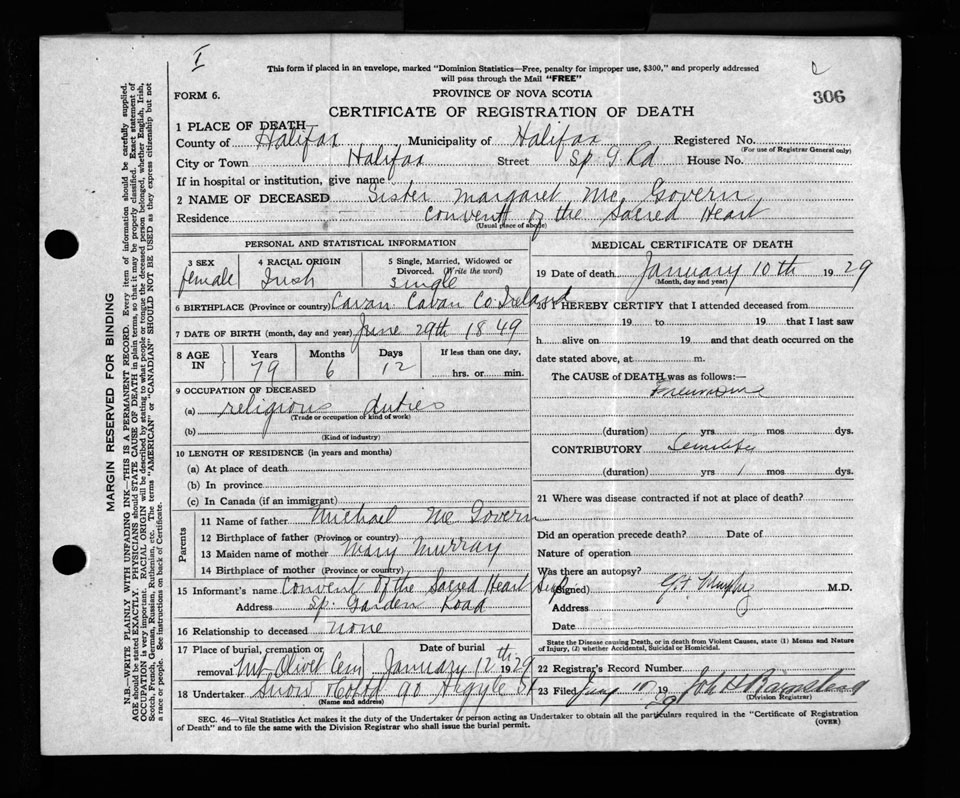 I
This form if placed in an envelope, marked "Dominion Statistics—Free, penalty for improper use, $300," and properly addressed
will pass through the Mail "FREE"
FORM 6.
PROVINCE OF NOVA SCOTIA
306
CERTIFICATE OF REGISTRATION OF DEATH
1 PLACE OF DEATH
County of Halifax Municipality of Halifax Registered No.
(For use of Registrar General only)
City or Town Halifax Street Sp. G Rd House No.
If in hospital or institution, give name
2 NAME OF DECEASED Sister Margaret Mc Govern
Residence Convent of the Sacred Heart
(Usual place of abode)
PERSONAL AND STATISTICAL INFORMATION
3 SEX 4 RACIAL ORIGIN 5 Single, Married, Widowed or
Divorced. (Write the word)
female Irish single
6 BIRTHPLACE (Province or country) Cavan Cavan Co. Ireland
7 DATE OF BIRTH (month, day and year) June 29th 1849
8 AGE IN Years Months Days If less than one day,
79 6 12 hrs. or min.
9 OCCUPATION OF DECEASED
(a) religious duties
(Trade or occupation or kind of work)
(b)
(Kind of industry)
10 LENGTH OF RESIDENCE (in years and months)
(a) At place of death
(b) In province
(c) In Canada (if an immigrant)
Parents
11 Name of father Michael Mc Govern
12 Birthplace of father (Province or country)
13 Maiden name of mother Mary Murray
14 Birthplace of mother (Province or country)
15 Informant's name Convent of the Sacred Heart
Address Sp. Garden Road
16 Relationship to deceased none
17 Place of burial, cremation or Date of burial
removal Mt Olivet Cem January 12th 1929
18 Undertaker Snow & Co Ltd 90 Argyle St
(Name and address)
MEDICAL CERTIFICATE OF DEATH
19 Date of death January 10th 1929
(Month, day and year)
20 I HEREBY CERTIFY that I attended deceased from
19 to 19 that I last saw
h alive on 19 and that death occurred on the
date stated above, at m.
The CAUSE of DEATH was as follows:—
Pneumonia
(duration) yrs mos dys.
CONTRIBUTORY Senility
(duration) yrs 1 mos dys.
21 Where was disease contracted if not at place of death?
Did an operation precede death? Date of
Nature of operation
Was there an autopsy?
(Signed) G.H. Murphy M.D.
Address
Date
State the Disease causing Death, or in death from Violent Causes, state (1) Means and Nature
of Injury, (2) whether Accidental, Suicidal or Homicidal.
22 Registrar's Record Number
23 Filed 10 1929
(Division Registrar)
SEC. 46—Vital Statistics Act makes it the duty of the Undertaker or person acting as Undertaker to obtain all the particulars required in the "Certificate of Registration
of Death" and to file the same with the Division Registrar who shall issue the burial permit. (OVER)
MARGIN RESERVED FOR BINDING
N.B.—WRITE PLAINLY WITH UNFADING INK—THIS IS A PERMANENT RECORD. Every item of information should be carefully supplied.
AGE should be stated EXACTLY. PHYSICIANS should STATE CAUSE OF DEATH in plain terms, so that it may be properly classified. Exact statement of
OCCUPATION is very important. RACIAL ORIGIN will be described by stating to what people or tongue the deceased person belonged, whether English, Irish,
Scotch, French, German, Russian, Ruthenian, etc. The terms "AMERICAN" or "CANADIAN" SHOULD NOT BE USED as they express citizenship but not
a race or people. See instructions on back of Certificate.